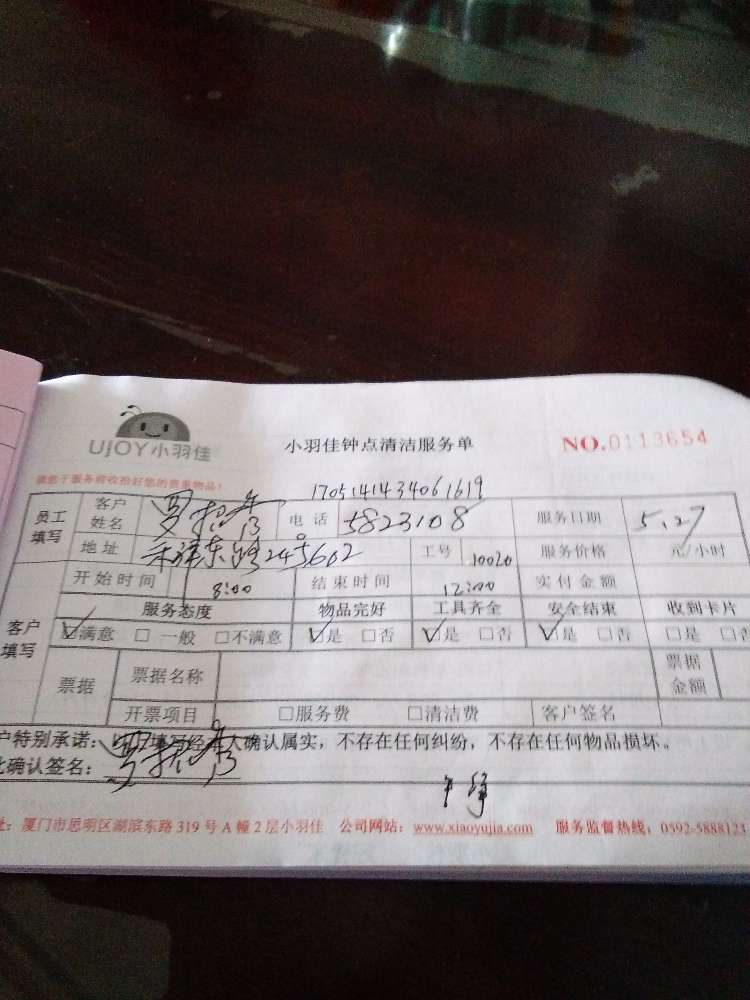 UJOY小羽佳 小羽佳钟点清洁服务单 NO.0113654
请您于服务前收拾好您的贵重物品!
1705141434061619
员工填写 客户姓名 罗 电话 5823108 服务日期 5.27
地址 东路245602 工号 10020 服务价格 元/小时
客户填写 开始时间 8:00 结束时间 12:00 实付金额
服务态度 物品完好 工具齐全 安全结束 收到卡片
☑满意 □一般 □不满意 ☑是 □否 ☑是 □否 ☑是 □否 □是 □否
票据 票据名称 票据金额
开票项目 □服务费 □清洁费 客户签名
户特别承诺: 填写经本人确认属实,不存在任何纠纷,不存在任何物品损坏。
此确认签名: 罗
址: 厦门市思明区湖滨东路319号A幢2层小羽佳 公司网站: www.xiaoyujia.com 服务监督热线: 0592-5888123